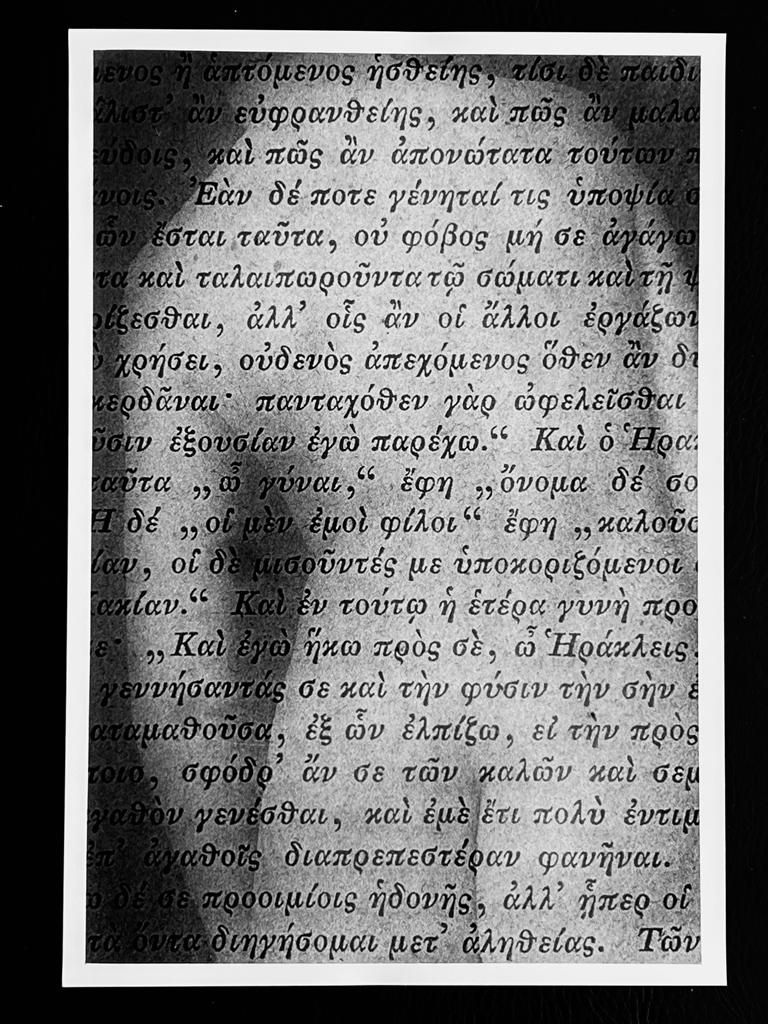 ενος ἢ ἁπτόμενος ἡσθείης, τίσι δὲ παιδι
άλιστ’ ἂν εὐφρανθείης, καὶ πῶς ἂν μαλα
εύδοις, καὶ πῶς ἂν ἀπονώτατα τούτων π
άνοις. Ἐὰν δέ ποτε γένηταί τις ὑποψία σ
ὧν ἔσται ταῦτα, οὐ φόβος μή σε ἀγάγω
τα καὶ ταλαιπωροῦντα τῷ σώματι καὶ τῇ ψ
ρίζεσθαι, ἀλλ’ οἷς ἂν οἱ ἄλλοι ἐργάζων
ὺ χρήσει, οὐδενὸς ἀπεχόμενος ὅθεν ἂν δυ
κερδᾶναι· πανταχόθεν γὰρ ὠφελεῖσθαι
οῦσιν ἐξουσίαν ἐγὼ παρέχω.“ Καὶ ὁ Ἡρακ
ταῦτα „ὦ γύναι,“ ἔφη „ὄνομα δέ σο
Ἡ δέ „οἱ μὲν ἐμοὶ φίλοι“ ἔφη „καλοῦσ
ίαν, οἱ δὲ μισοῦντές με ὑποκοριζόμενοι
Κακίαν.“ Καὶ ἐν τούτῳ ἡ ἑτέρα γυνὴ προ
ε· „Καὶ ἐγὼ ἥκω πρὸς σὲ, ὦ Ἡράκλεις.
γεννήσαντάς σε καὶ τὴν φύσιν τὴν σὴν ἐ
αταμαθοῦσα, ἐξ ὧν ἐλπίζω, εἰ τὴν πρὸς
ποιο, σφόδρ’ ἄν σε τῶν καλῶν καὶ σεμ
γαθὸν γενέσθαι, καὶ ἐμὲ ἔτι πολὺ ἐντιμ
ἐπ’ ἀγαθοῖς διαπρεπεστέραν φανῆναι.
ω δέ σε προοιμίοις ἡδονῆς, ἀλλ’ ᾗπερ οἱ
τὰ ὄντα διηγήσομαι μετ’ ἀληθείας. Τῶν